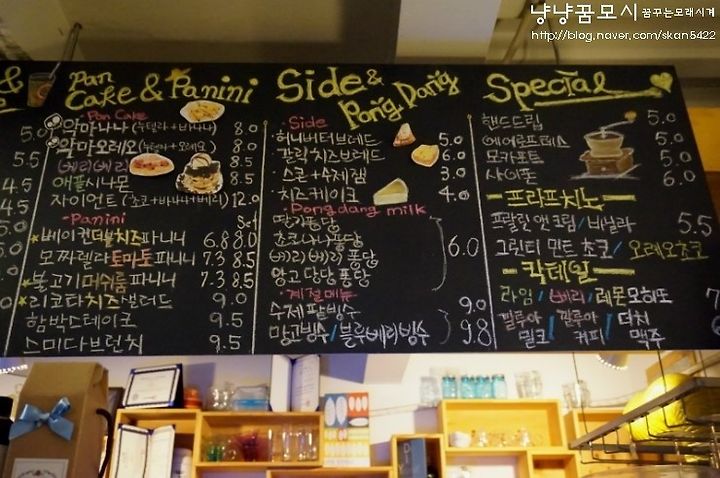 냥냥꿈모시 꿈꾸는모래시계
http://blog.naver.com/skan5422
&
5.0
5.5
4.5
4.5
Pan Cake & Panini
Pan Cake
악마나나 (누텔라+바나나) 8.0
악마오레오 8.0
베리베리 8.5
애플시나몬 8.5
자이언트 (초코+바나나+베리) 12.0
Panini Set
베이컨더블치즈파니니 6.8 8.0
모짜렐라토마토파니니 7.3 8.5
불고기머쉬룸파니니 7.3 8.5
리코타치즈샐러드 9.0
함박스테이크 9.5
스미다브런치 9.5
Side & Pong Dang
Side
허니버터브레드 5.0
갈릭치즈브레드 6.0
스콘+수제잼 3.0
치즈케이크 4.0
Pongdang milk
딸기퐁당
쵸코나나퐁당
베리베리 퐁당
망고당당 퐁당
6.0
계절메뉴
수제팥빙수 9.0
망고빙수/블루베리빙수 9.8
Special
핸드드립 5.0
에어로프레스 5.0
모카포트 5.0
사이폰 6.0
프라프치노
프랄린앤크림/바닐라 5.5
그린티 민트 초코/오레오초코
칵테일
라임/베리/레몬모히또 7.0
깔루아밀크/깔루아커피/더치맥주 7.5